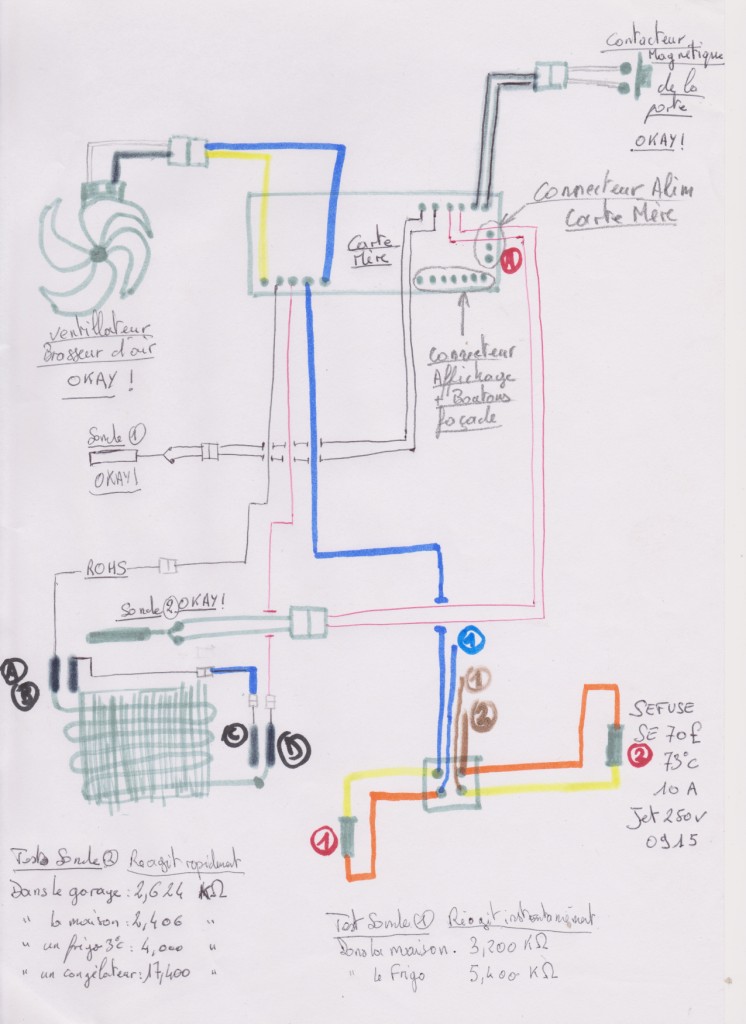 Contacteur
Magnétique
de la
porte
OKAY!
Connecteur Alim
Carte Mère
Carte
Mère
1
Connecteur
Affichage
+ Boutons
façade
Ventillateur
Brasseur d'air
OKAY !
Sonde 1
OKAY!
ROHS
Sonde 2 OKAY!
A
B
C
D
1
1
2
SEFUSE
SE 70£
73°C
10 A
Jet 250v
0915
2
1
Tests Sonde 2 Réagit rapidement
Dans le garage : 2,624 KΩ
" la maison : 2,406 "
" un frigo 3°C : 4,000 "
" un congélateur : 17,400 "
Test Sonde 1 Réagit instantanément
Dans la maison. 3,200 KΩ
" le Frigo 5,400 KΩ